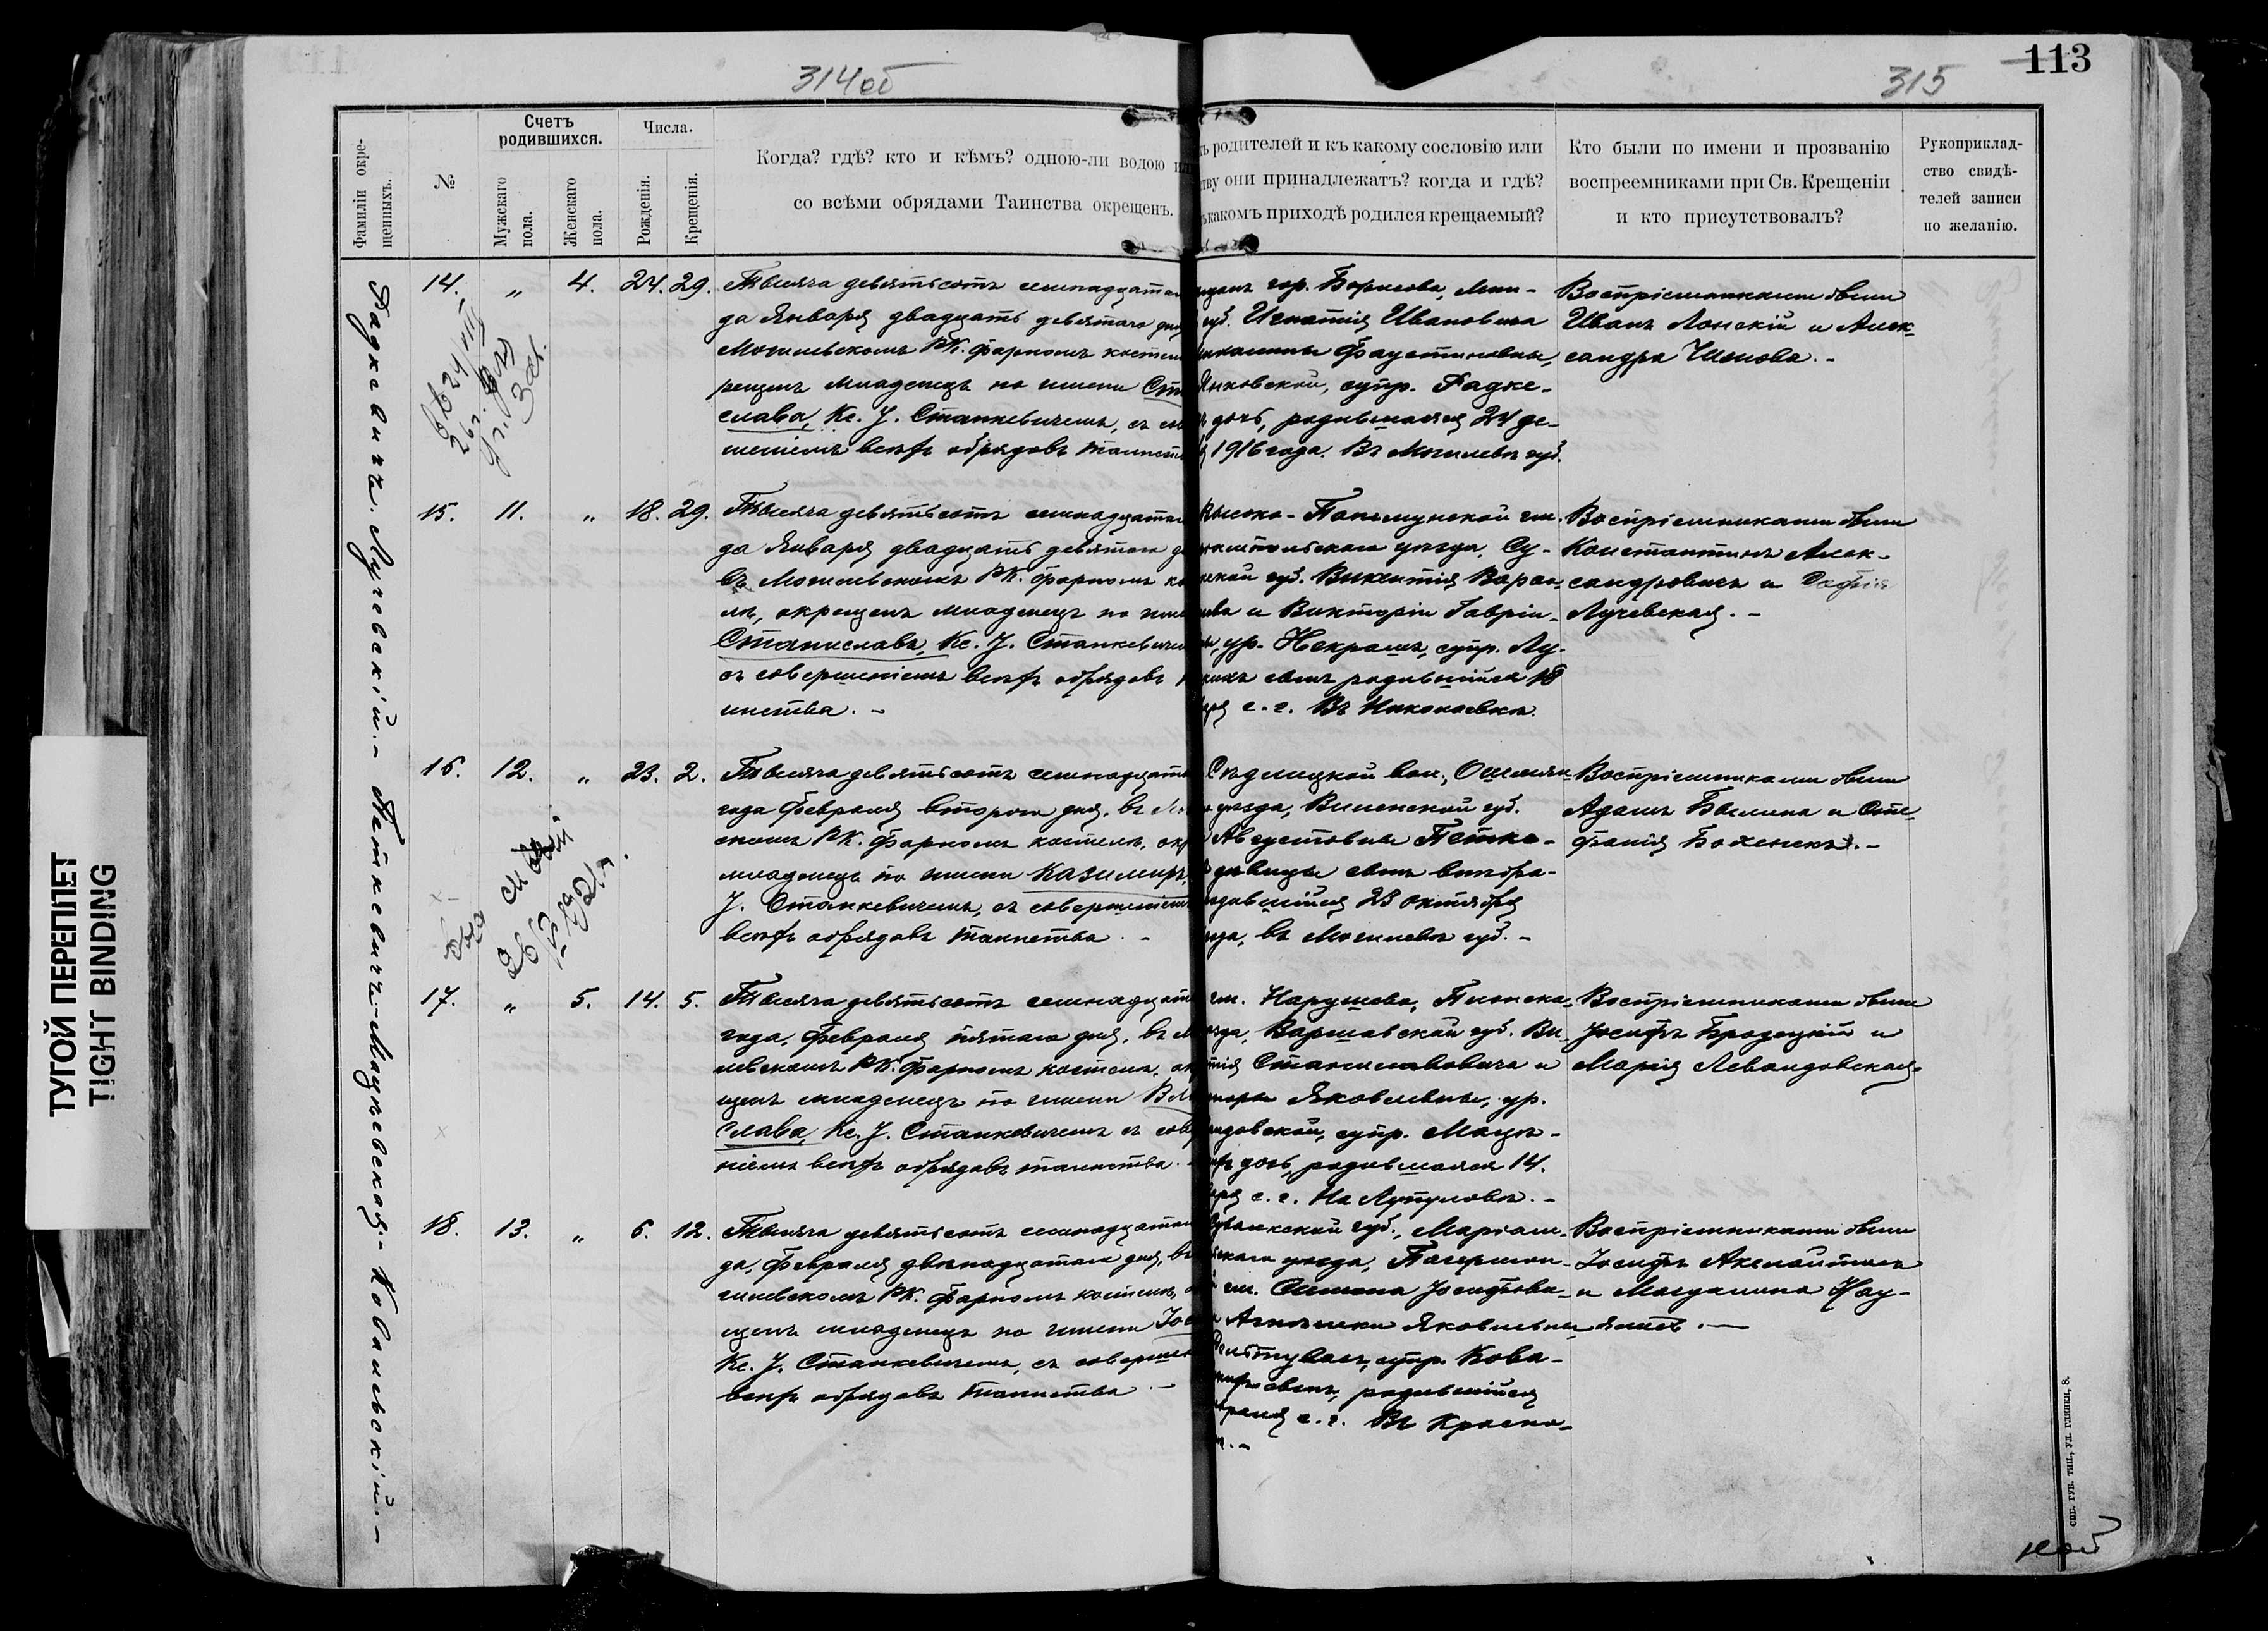 314об
315
113
ТУГОЙ ПЕРЕПЛЕТ
TIGHT BINDING
Фамиліи окре-
щенныхъ.
№
Счетъ
родившихся.
Мужскаго
пола.
Женскаго
пола.
Числа.
Рожденія.
Крещенія.
Когда? гдѣ? кто и кѣмъ? одною-ли водою или
со всѣми обрядами Таинства окрещенъ.
родителей и къ какому сословію или
они принадлежатъ? когда и гдѣ?
какомъ приходѣ родился крещаемый?
Кто были по имени и прозванію
воспреемниками при Св. Крещеніи
и кто присутствовалъ?
Рукоприклад-
ство свидѣ-
телей записи
по желанію.
Радкевичъ. Лучевскій. - Петкевичъ - Мацпевская - Ковальскій. -
14. „ 4. 24. 29.
Тысяча девятьсотъ семнадцата
да Января двадцать девятаго дня
Могилевскомъ РК. фарномъ костел
рещенъ младенецъ по имени Ст
слава, Кс. J. Станкевичемъ, съ со
шеніемъ всѣхъ обрядовъ таинств
гор. Борисова, Мин-
губ. Игнатія Ивановича
Фаустиновны,
Янковской, супр. Радке-
дочь, родившаяся 24 де-
1916 года. Въ Могилевѣ губ.
Воспріемниками были
Иванъ Лонскій и Алек-
сандра Чижова. -
15. 11. „ 18. 29.
Тысяча девятьсотъ семнадцата
да Января двадцать девятаго д
въ Могилевскомъ РК. фарномъ ко
лѣ, окрещенъ младенецъ по име
Станиславъ, Кс. J. Станкевичем
съ совершеніемъ всѣхъ обрядовъ т
инства. -
Высоко-Понемунской гм.
уѣзда, Су-
ской губ. Викентія
и Викторіи Гавріи-
ур. Некрашъ, супр. Лу-
сынъ родившійся 18
с. г. Въ Николаевкѣ.
Воспріемниками были
Константинъ Алек-
сандровичъ и Софія
Лучевская. -
16. 12. „ 23. 2.
Тысяча девятьсотъ семнадцата
года Февраля второго дня, въ Мо
скомъ РК. фарномъ костелѣ, окр
младенецъ по имени Казимиръ,
J. Станкевичемъ, съ совершеніем
всѣхъ обрядовъ таинства. -
вол., Ошмян-
уѣзда, Виленской губ.
Августовны Петке-
дѣвицы сынъ внѣбра-
родившійся 23 октября
года, въ Могилевѣ губ. -
Воспріемниками были
Адамъ Былина и Сте-
фанія Боженекъ. -
17. „ 5. 14. 5.
Тысяча девятьсотъ семнадцата
года, Февраля пятаго дня, въ М
левскомъ РК. фарномъ костелѣ, ок
щенъ младенецъ по имени Вла
слава, Кс. J. Станкевичемъ съ сов
ніемъ всѣхъ обрядовъ таинства. -
гм. Нарушево, Плонска-
уѣзда, Варшавской губ. Ви-
Станиславовича и
Яковлевны, ур.
супр. Мацп-
дочь, родившаяся 14.
с. г. На Лупуловѣ. -
Воспріемниками были
Іосифъ Бродецкій и
Марія Левандовская.
18. 13. „ 6. 12.
Тысяча девятьсотъ семнадцата
да, Февраля двѣнадцатаго дня, въ
гилевскомъ РК. фарномъ костелѣ, о
щенъ младенецъ по имени Іос
Кс. J. Станкевичемъ, съ соверше
всѣхъ обрядовъ таинства. -
Сувалкской губ., Маріам-
уѣзда,
гм. Симона Іосифови-
Яковлевны
супр. Кова-
сынъ, родившійся
с. г. Въ Красно-
Воспріемниками были
Іосифъ
и Магдалина
СПБ. ГУБ. ТИП., УЛ. ГЛИНКИ, 8.